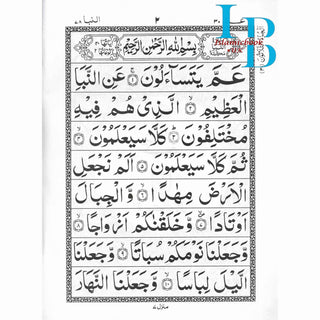 النبا ٧٨
٢
عم ٣٠
بِسْمِ اللّٰهِ الرَّحْمٰنِ الرَّحِيْمِ
Islamic Book
عَمَّ يَتَسَآءَلُوْنَ ۚ﴿١﴾ عَنِ النَّبَاِ
الْعَظِيْمِ ۙ﴿٢﴾ الَّذِيْ هُمْ فِيْهِ
مُخْتَلِفُوْنَ ؕ﴿٣﴾ كَلَّا سَيَعْلَمُوْنَ ۙ﴿٤﴾
ثُمَّ كَلَّا سَيَعْلَمُوْنَ ﴿٥﴾ اَلَمْ نَجْعَلِ
الْاَرْضَ مِهٰدًا ۙ﴿٦﴾ وَّ الْجِبَالَ
اَوْتَادًا ۪ۙ﴿٧﴾ وَّ خَلَقْنٰكُمْ اَزْوَاجًا ۙ﴿٨﴾
وَّ جَعَلْنَا نَوْمَكُمْ سُبَاتًا ۙ﴿٩﴾ وَّ جَعَلْنَا
الَّيْلَ لِبَاسًا ۙ﴿١٠﴾ وَّ جَعَلْنَا النَّهَارَ
منزل ٧